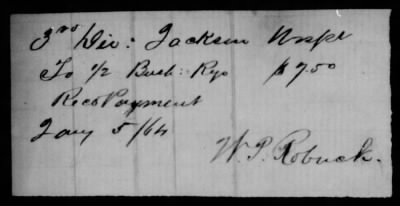 3rd Div: Jackson Hospl
To 1/2 Bush: Rye $7.50
Recd Payment
Jany 5/64
W. P. Robuck.